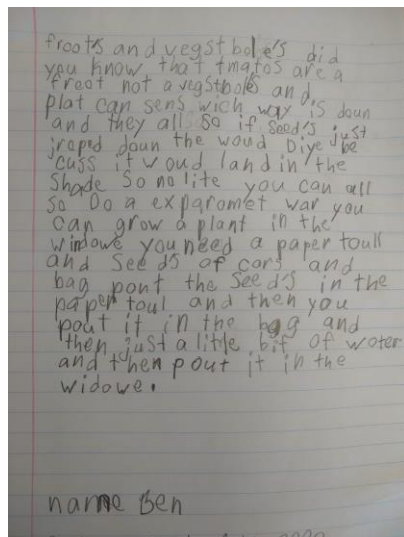 froots and vegstbole's did
you know that tmatos are a
froot not a vegstboles and
plat can sens wich way is doun
and they all so if seed's just
jroped doun the woud Diye be
cuss it woud land in the
Shade So no lite you can all
so Do a exparomet war you
can grow a plant in the
windowe you need a paper toull
and Seed's of cors and
bag pont the Seed's in the
paper toul and then you
pout it in the bag and
then just a litlle bit of woter
and then pout it in the
widowe.
name Ben